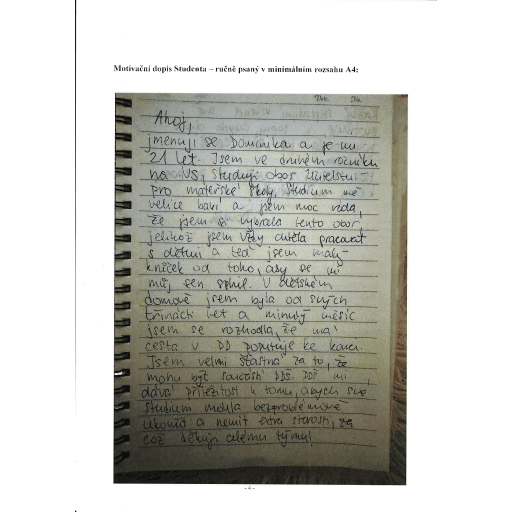 Motivační dopis Studenta – ručně psaný v minimálním rozsahu A4:
Ahoj,
jmenuji se Dominika a je mi
21 let. Jsem ve druhém ročníku
na VŠ, studuji obor Učitelství
pro mateřské školy. Studium mě
velice baví a jsem moc ráda,
že jsem si vybrala tento obor,
jelikož jsem vždy chtěla pracovat
s dětmi a teď jsem malý
krůček od toho, aby se mi
můj sen splnil. V dětském
domově jsem byla od svých
třinácti let a minulý měsíc
jsem se rozhodla, že má
cesta v DD poputuje ke konci.
Jsem velmi šťastná za to, že
mohu být součástí DDŠ. DDŠ mi
dává příležitost k tomu, abych své
studium mohla bezproblémově
ukončit a nemít extra starosti, za
což děkuji celému týmu!